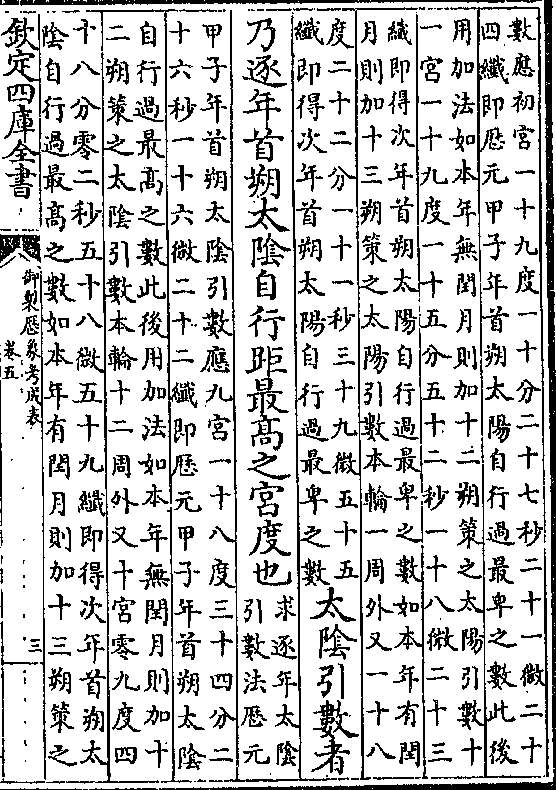 數應初宮一十九度一十分二十七秒二十一微二十
四纖即歴元甲子年首朔太陽自行過最卑之數此後
用加法如本年無閏月則加十二朔策之太陽引數十
一宮一十九度一十五分五十二秒一十八微二十三
纖即得次年首朔太陽自行過最卑之數如本年有閏
月則加十三朔策之太陽引數本輪一周外又一十八
度二十二分一十一秒三十九微五十五
纖即得次年首朔太陽自行過最卑之數
太陰引數者
乃逐年首朔太陰自行距最高之宮度也
求逐年太陰
引數法歴元
甲子年首朔太陰引數應九宮一十八度三十四分二
十六秒一十六微二十二纖即歴元甲子年首朔太陰
自行過最高之數此後用加法如本年無閏月則加十
二朔策之太陰引數本輪十二周外又十宮零九度四
十八分零二秒五十八微五十九纖即得次年首朔太
陰自行過最高之數如本年有閏月則加十三朔策之
欽定四庫全書
御製歴象考成表
卷五
三